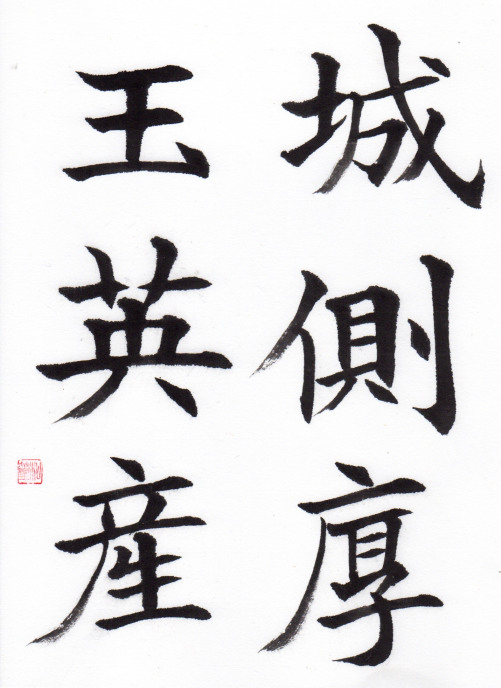 城側厚
玉英産